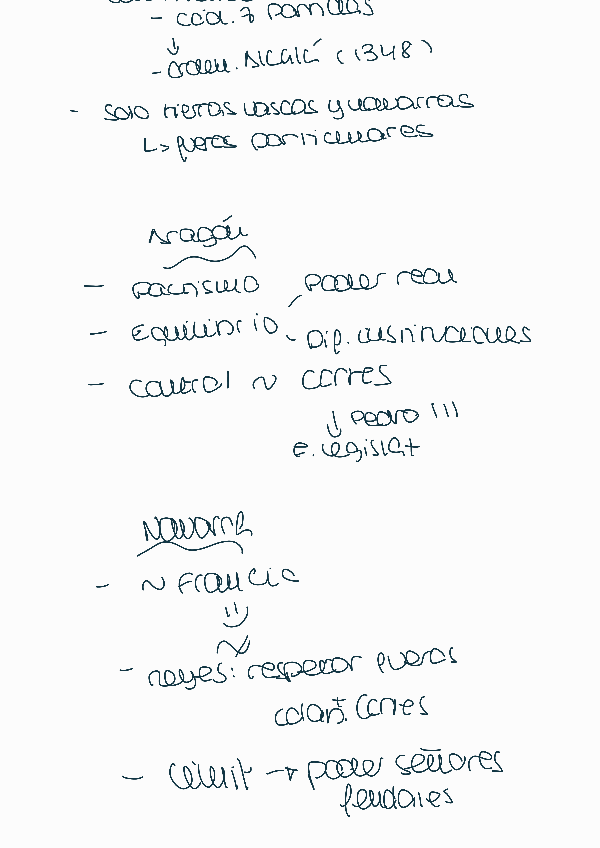 - cód. 7 partidas
↓
- Orden. Alcalá (1348)
- solo tierras vascas y navarras
↳ fueros particulares
Aragón
- pactismo
poder real
- Equilibrio
Dip. instituciones
- control ~ Cortes
↓ Pedro III
E. legislat
Navarra
- ~ Francia
- reyes: respetar fueros
Cortes
- limit → poder señores
feudales